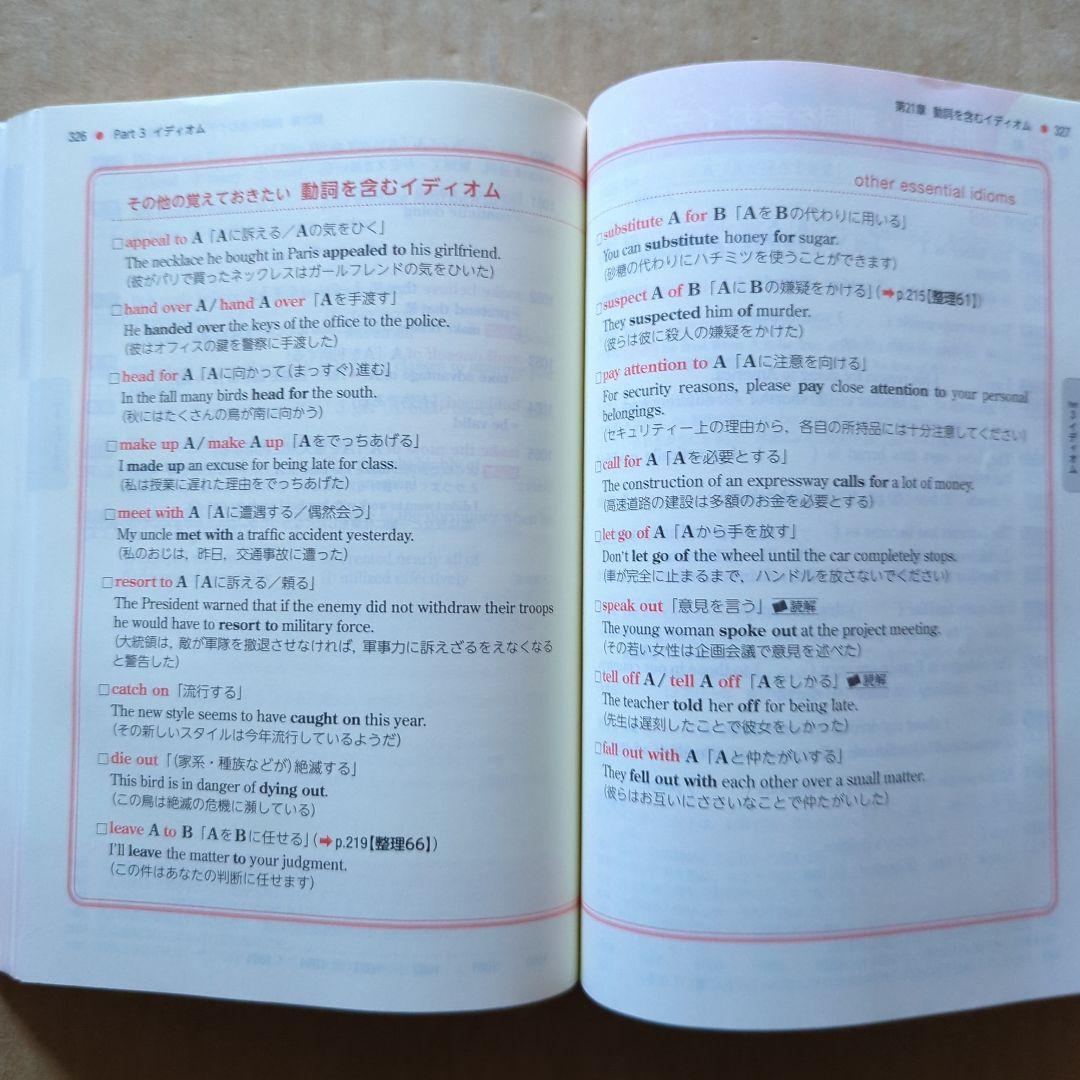 326 ● Part 3 イディオム
その他の覚えておきたい 動詞を含むイディオム
□appeal to A「Aに訴える／Aの気をひく」
The necklace he bought in Paris appealed to his girlfriend.
(彼がパリで買ったネックレスはガールフレンドの気をひいた)
□hand over A / hand A over「Aを手渡す」
He handed over the keys of the office to the police.
(彼はオフィスの鍵を警察に手渡した)
□head for A「Aに向かって(まっすぐ)進む」
In the fall many birds head for the south.
(秋にはたくさんの鳥が南に向かう)
□make up A / make A up「Aをでっちあげる」
I made up an excuse for being late for class.
(私は授業に遅れた理由をでっちあげた)
□meet with A「Aに遭遇する／偶然会う」
My uncle met with a traffic accident yesterday.
(私のおじは，昨日，交通事故に遭った)
□resort to A「Aに訴える／頼る」
The President warned that if the enemy did not withdraw their troops
he would have to resort to military force.
(大統領は，敵が軍隊を撤退させなければ，軍事力に訴えざるをえなくなる
と警告した)
□catch on「流行する」
The new style seems to have caught on this year.
(その新しいスタイルは今年流行しているようだ)
□die out「(家系・種族などが)絶滅する」
This bird is in danger of dying out.
(この鳥は絶滅の危機に瀕している)
□leave A to B「AをBに任せる」(➡p.219【整理66】)
I'll leave the matter to your judgment.
(この件はあなたの判断に任せます)
第21章 動詞を含むイディオム ● 327
other essential idioms
□substitute A for B「AをBの代わりに用いる」
You can substitute honey for sugar.
(砂糖の代わりにハチミツを使うことができます)
□suspect A of B「AにBの嫌疑をかける」(➡p.215【整理61】)
They suspected him of murder.
(彼らは彼に殺人の嫌疑をかけた)
□pay attention to A「Aに注意を向ける」
For security reasons, please pay close attention to your personal
belongings.
(セキュリティー上の理由から，各自の所持品には十分注意してください)
□call for A「Aを必要とする」
The construction of an expressway calls for a lot of money.
(高速道路の建設は多額のお金を必要とする)
□let go of A「Aから手を放す」
Don't let go of the wheel until the car completely stops.
(車が完全に止まるまで，ハンドルを放さないでください)
□speak out「意見を言う」読解
The young woman spoke out at the project meeting.
(その若い女性は企画会議で意見を述べた)
□tell off A / tell A off「Aをしかる」読解
The teacher told her off for being late.
(先生は遅刻したことで彼女をしかった)
□fall out with A「Aと仲たがいする」
They fell out with each other over a small matter.
(彼らはお互いにささいなことで仲たがいした)
イディオム